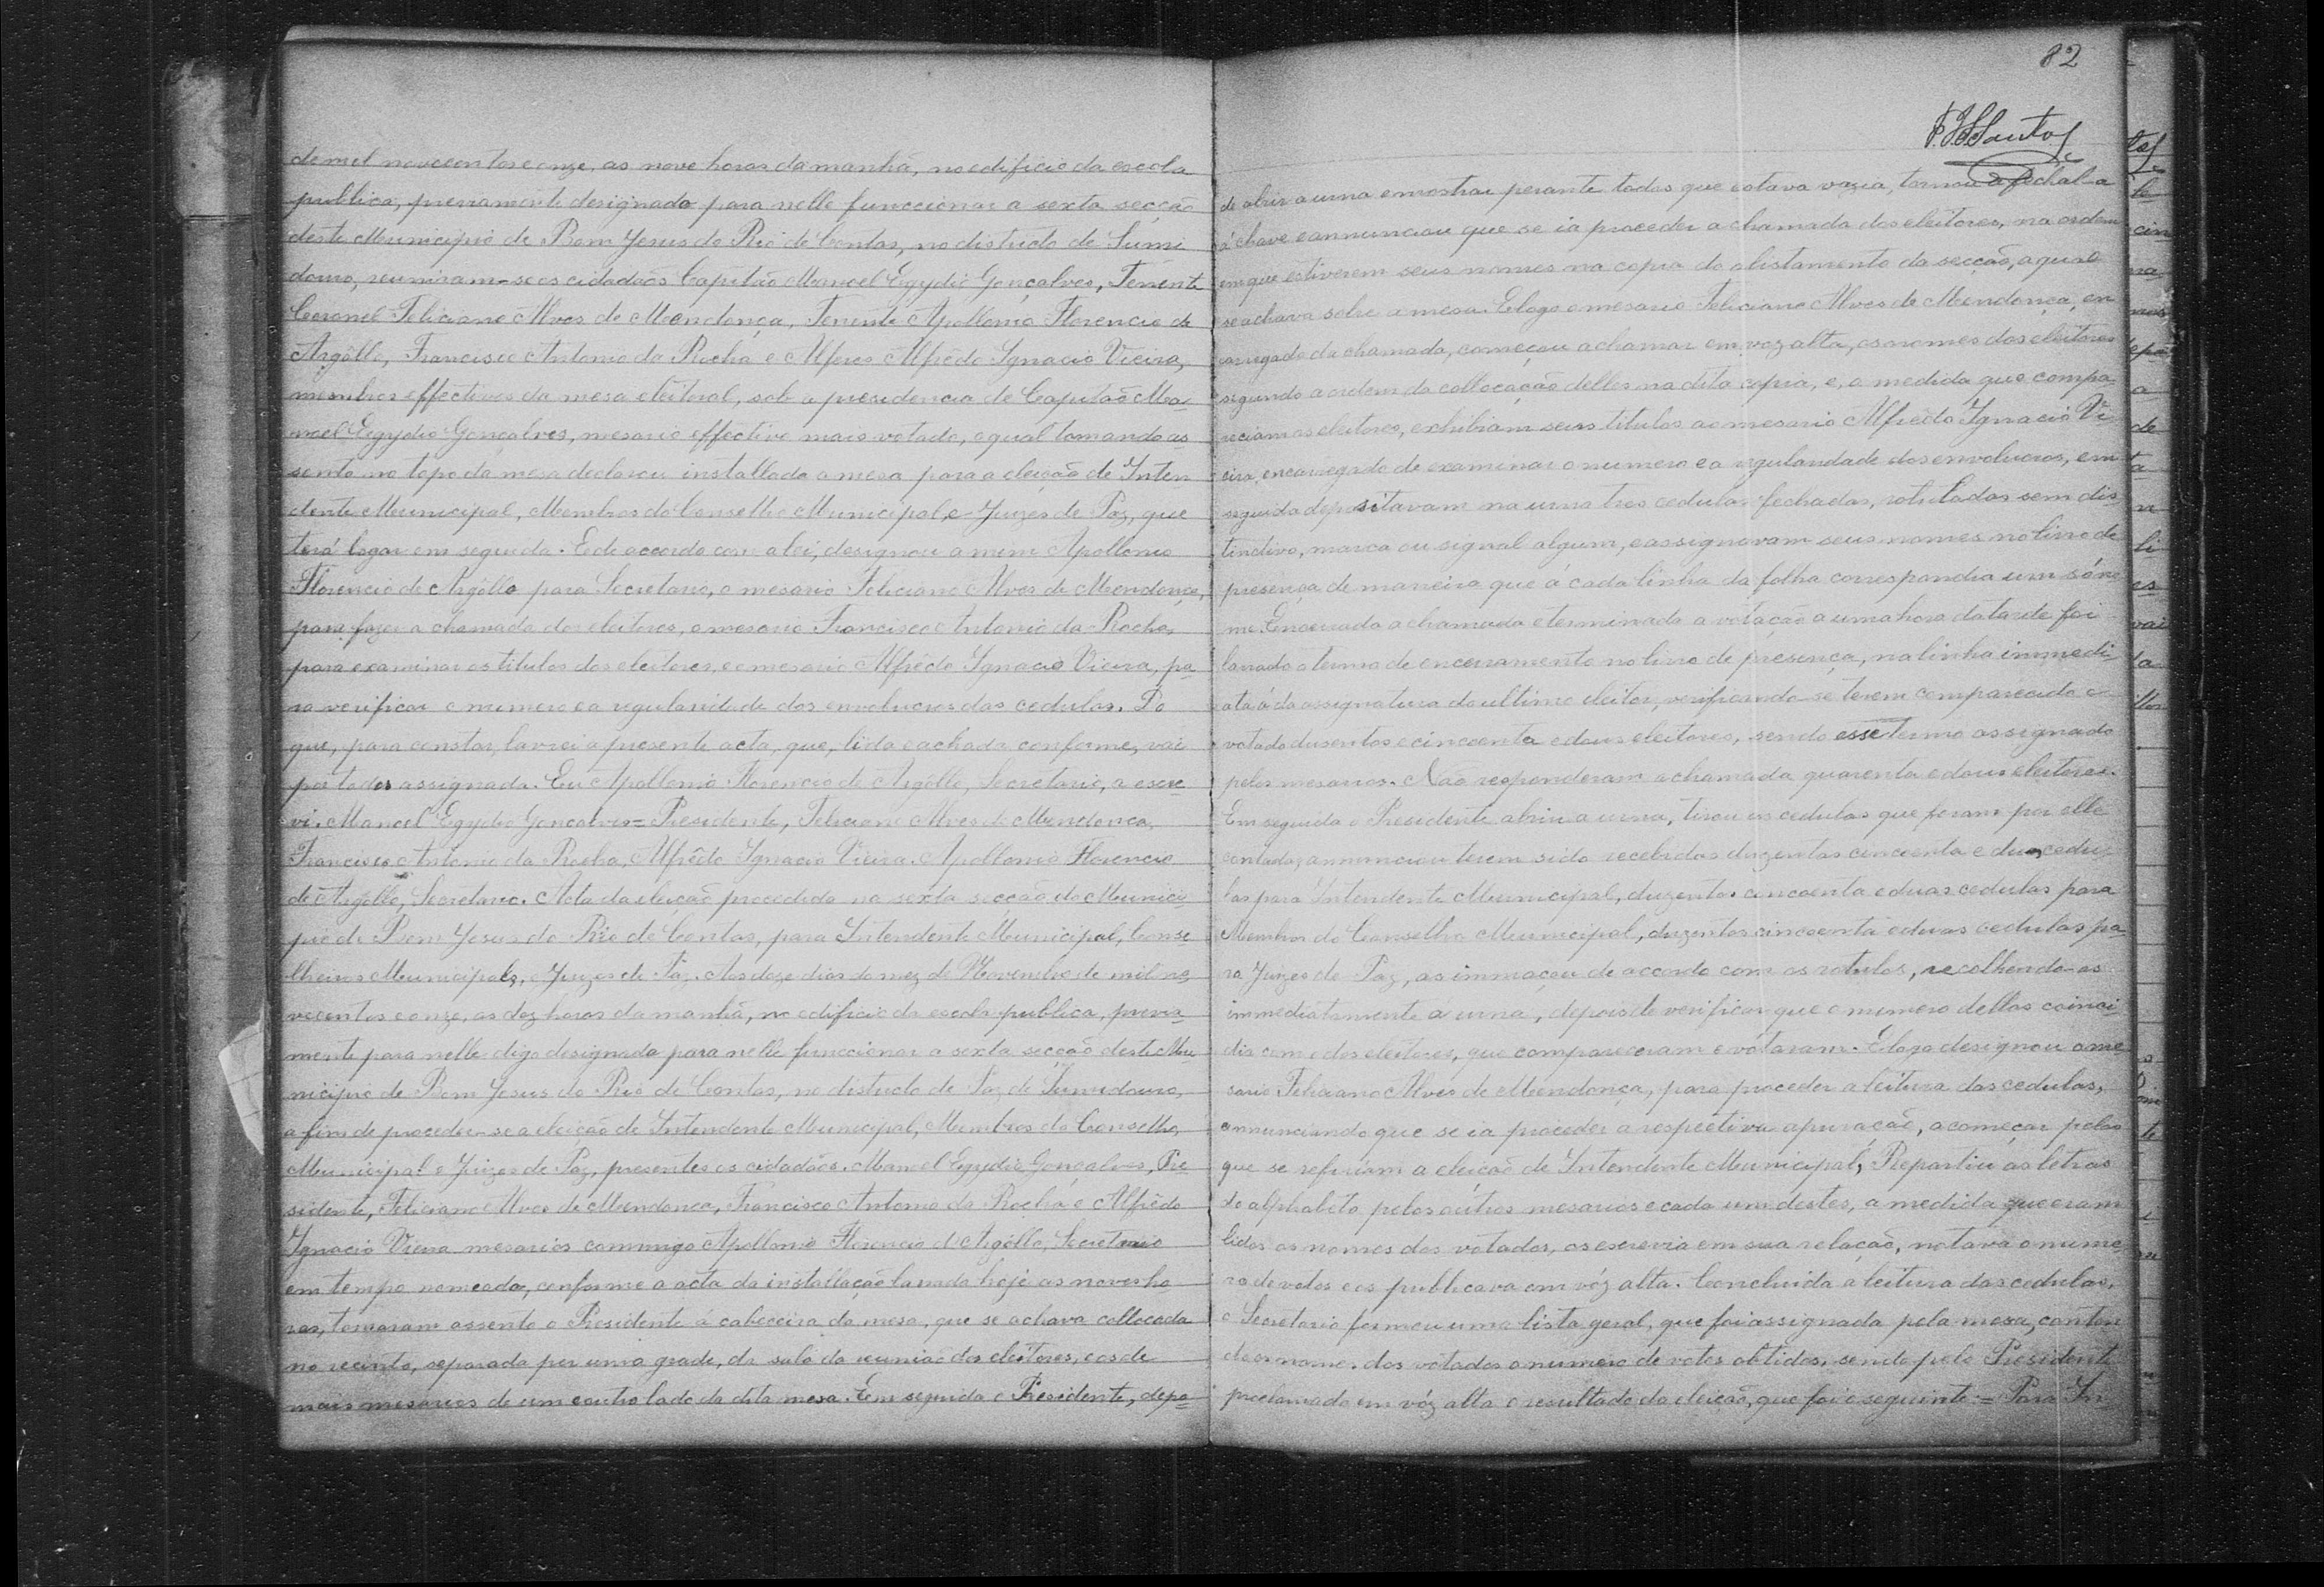 de mil novecentos e onze, as nove horas da manhã, no edificio da escola
publica, previamente designado para nelle funccionar a sexta secção
deste Municipio de Bom Jesus do Rio de Contas, no districto de Sumi
douro, reuniram-se os cidadãos Capitão Manoel Egydio Gonçalves, Tenente
Coronel Feliciano Alves de Mendonça, Tenente Apollonio Florencio de
Argôllo, Francisco Antonio da Rocha e Alferes Alfrêdo Ignacio Vieira,
membros effectivos da mesa eleitoral, sob a presidencia do Capitão Ma-
noel Egydio Gonçalves, mesario effectivo mais votado, o qual tomando as
sento no topo da mesa declarou installada a mesa para a eleição de Inten
dente Municipal, Membros do Conselho Municipal e Juizes de Paz, que
terá logar em seguida. E de accordo com a lei, designou a mim Apollonio
Florencio de Argôllo para Secretario, o mesario Feliciano Alves de Mendonça,
para fazer a chamada dos eleitores, o mesario Francisco Antonio da Rocha,
para examinar os titulos dos eleitores, e o mesario Alfrêdo Ignacio Vieira, pa-
ra verificar o numero e a regularidade dos envolucros das cedulas. Do
que, para constar, lavrei a presente acta, que, lida e achada conforme, vai
por todos assignada. Eu Apollonio Florencio de Argôllo, Secretario, a escre-
vi. Manoel Egydio Gonçalves = Presidente, Feliciano Alves de Mendonça,
Francisco Antonio da Rocha, Alfrêdo Ignacio Vieira. Apollonio Florencio
de Argôllo, Secretario. Acta da eleição procedida na sexta secção do Munici-
pio de Bom Jesus do Rio de Contas, para Intendente Municipal, Conse
lheiros Municipaes, e Juizes de Paz. Aos doze dias do mez de Novembro de mil no-
vecentos e onze, as dez horas da manhã, no edificio da escola publica, previa-
mente para nelle digo designado para nelle funccionar a sexta secção deste Mu
nicipio de Bom Jesus do Rio de Contas, no districto de Paz de Sumidouro,
a fim de proceder-se a eleição de Intendente Municipal, Membros do Conselho
Municipal e Juizes de Paz, presentes os cidadãos. Manoel Egydio Gonçalves, Pre
sidente, Feliciano Alves de Mendonça, Francisco Antonio da Rocha e Alfrêdo
Ignacio Vieira mesarios commigo Apollonio Florencio d'Argôllo, Secretario
em tempo nomeado, conforme a acta da installação lavrada hoje as nove ho
ras, tomaram assento o Presidente á cabeceira da mesa, que se achava collocada
no recinto, separada por uma grade, da sala da reunião dos eleitores, e os de
mais mesarios de um e outro lado da dita mesa. Em seguida o Presidente, depo-
82
F. J. S. Santos
de abrir a urna e mostrar perante todos que estava vazia, tornou a fechal-a
á chave e annunciou que se ia proceder a chamada dos eleitores, na ordem
em que estiverem seus nomes na copia do alistamento da secção, a qual
se achava sobre a mesa. E logo o mesario Feliciano Alves de Mendonça, en
carregado da chamada, começou a chamar em voz alta, os nomes dos eleitores
segundo a ordem da collocação delles na dita copia, e, a medida que compa-
reciam os eleitores, exhibiam seus titulos ao mesario Alfredo Ignacio Vi
eira, encarregado de examinar o numero e a regularidade dos envolucros, em
seguida depositavam na urna tres cedulas fechadas, rotuladas sem dis-
tinctivo, marca ou signal algum, e assignavam seus nomes no livro de
presença de maneira que á cada linha da folha correspondia um só no
me. Encerrada a chamada e terminada a votação a uma hora da tarde foi
lavrado o termo de encerramento no livro de presença, na linha immedi-
ata á da assignatura do ultimo eleitor, verificando-se terem comparecido e
votado dusentos e cincoenta e dous eleitores, sendo esse termo assignado
pelos mesarios. Não responderam a chamada quarenta e dous eleitores.
Em seguida o Presidente abriu a urna, tirou as cedulas que foram por elle
contadas, annunciou terem sido recebidas duzentas cincoenta e duas cedu-
las para Intendente Municipal, duzentas cincoenta e duas cedulas para
Membros do Conselho Municipal, duzentas cincoenta e duas cedulas pa-
ra Juizes de Paz, as immaçou de accordo com os rotulos, recolhendo-as
immediatamente á urna, depois de verificar que o numero dellas coinci-
dia com o dos eleitores, que compareceram e votaram. E logo designou o me
sario Feliciano Alves de Mendonça, para proceder a leitura das cedulas,
annunciando que se ia proceder a respectiva apuração, a começar pelas
que se referiam a eleição de Intendente Municipal, Repartiu as letras
do alphabeto pelos outros mesarios e cada um destes, a medida que eram
lidos os nomes dos votados, os escrevia em sua relação, notava o nume
ro de votos e os publicava em vóz alta. Concluida a leitura das cedulas,
o Secretario formou uma lista geral, que foi assignada pela mesa, conten
do os nomes dos votados o numero de votos obtidos, sendo pelo Presidente
proclamado em vóz alta o resultado da eleição, que foi o seguinte = Para In